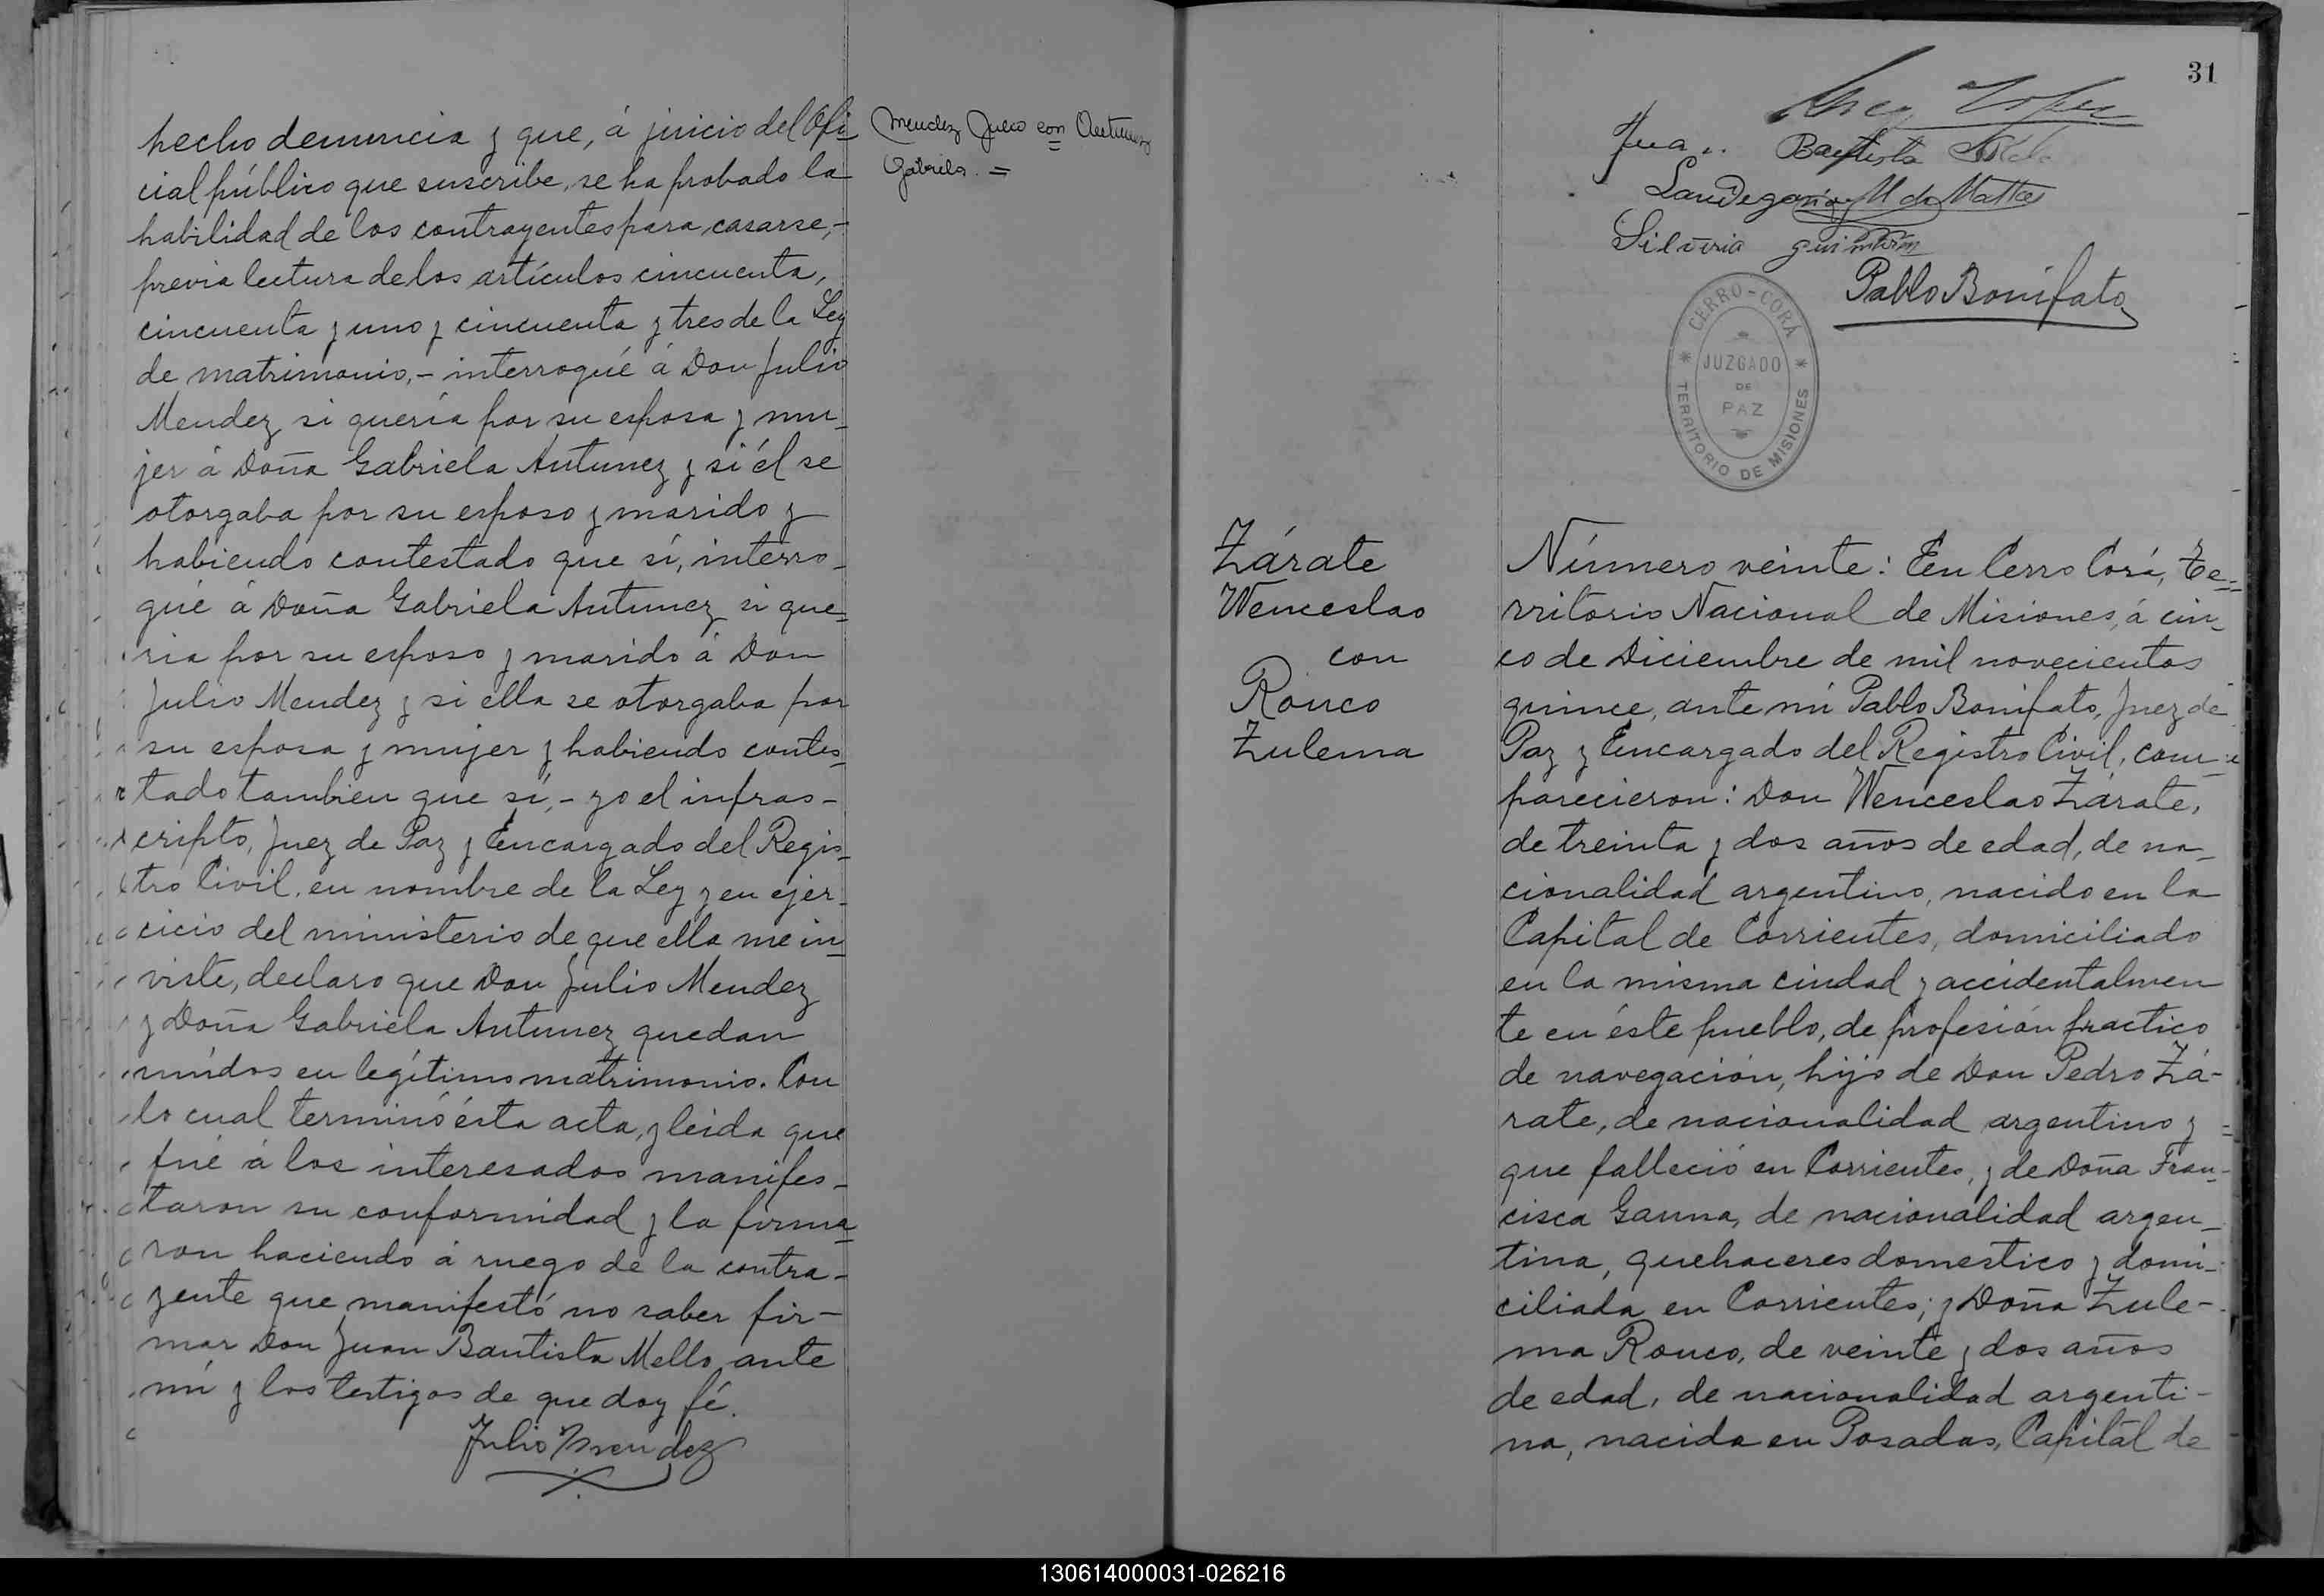 hecho denuncia y que, á juicio del Ofi
cial público que suscribe, se ha probado la
habilidad de los contrayentes para casarse,-
previa lectura de los artículos cincuenta,
cincuenta y uno y cincuenta y tres de la Ley
de matrimonio,- interrogué á Don Julio
Mendez si quería por su esposa y mu_
jer á Doña Gabriela Antunez y si él se
otorgaba por su esposo y marido y
habiendo contestado que sí, interro_
gué á Doña Gabriela Antunez si que_
ria por su esposo y marido á Don
Julio Mendez y si ella se otorgaba por
su esposa y mujer y habiendo contes_
tado tambien que sí,- yo el infras-
cripto, Juez de Paz y Encargado del Regis_
tro Civil, en nombre de la Ley y en ejer_
cicio del ministerio de que ella me in_
viste, declaro que Don Julio Mendez
y Doña Gabriela Antunez quedan
unídos en legítimo matrimonio. Con
lo cual terminó ésta acta, y leida que
fué á los interesados manifes_
taron su conformidad y la firma_
ron haciendo á ruego de la contra-
yente que manifestó no saber fir-
mar Don Juan Bautista Mello, ante
mí y los testigos de que doy fé.
Julio Mendez
Mendez Julio con Antunez
Gabriela. =
31
Bautista
Silveria
Pablo Bonifato
CERRO-CORÁ
JUZGADO
DE
PAZ
TERRITORIO DE MISIONES
Zárate
Wenceslao
con
Rouco
Zulema
Número veinte: En Cerro Corá, Te=
rritorio Nacional de Misiones, á cin_
co de Diciembre de mil novecientos
quince, ante mí Pablo Bonifato, Juez de
Paz y Encargado del Registro Civil, com_
parecieron: Don Wenceslao Zárate,
de treinta y dos años de edad, de na_
cionalidad argentino, nacido en la
Capital de Corrientes, domiciliado
en la misma ciudad y accidentalmen
te en éste pueblo, de profesión practico
de navegación, hijo de Don Pedro Zá-
rate, de nacionalidad argentino y
que falleció en Corrientes, y de Doña Fran_
cisca Gauna, de nacionalidad argen_
tina, quehaceres domestico y domi-
ciliada en Corrientes; y Doña Zule-
ma Rouco, de veinte y dos años
de edad, de nacionalidad argenti-
na, nacida en Posadas, Capital de
130614000031-026216